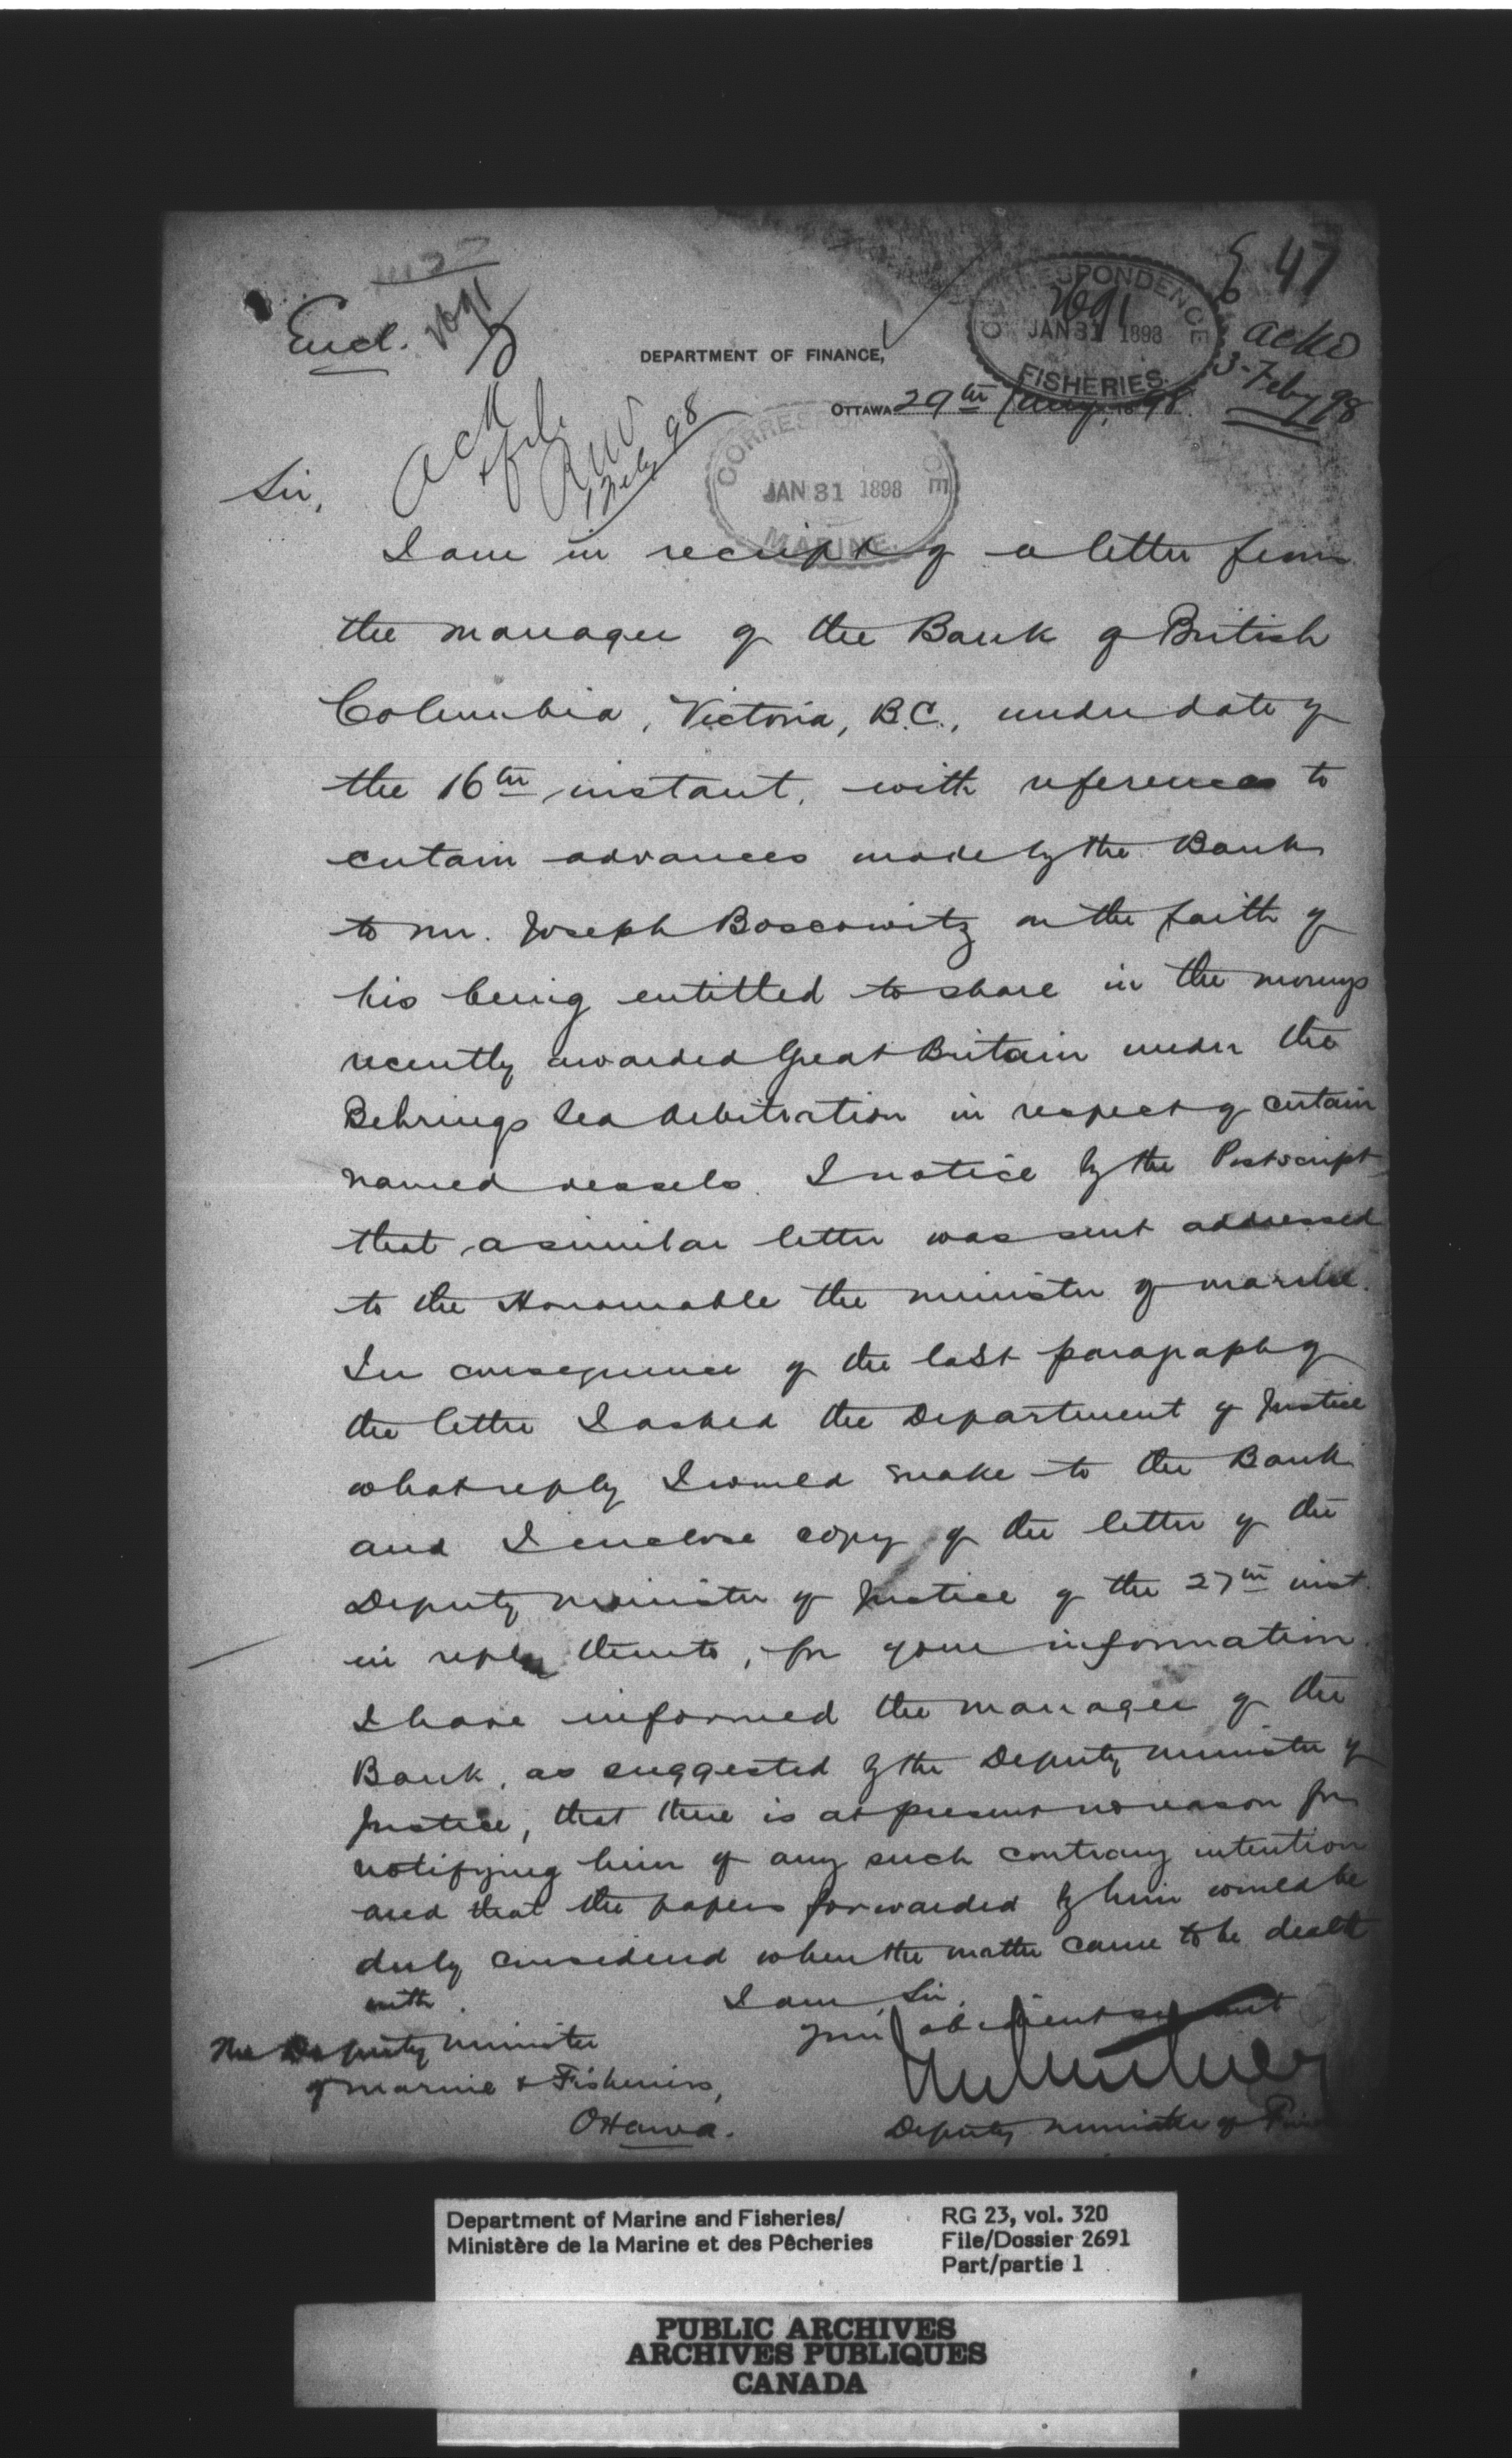 47
Encl. 2691
CORRESPONDENCE
2691
JAN 31 1898
FISHERIES.
ackd
3 Feby 98
DEPARTMENT OF FINANCE,
OTTAWA 29th Jany, 1898.
Ack
& file
RNV
1 Feby 98
CORRESPONDENCE
JAN 31 1898
MARINE.
Sir,
I am in receipt of a letter from
the manager of the Bank of British
Columbia, Victoria, B.C., under date of
the 16th instant, with reference to
certain advances made by the Bank
to Mr. Joseph Boscowitz on the faith of
his being entitled to share in the moneys
recently awarded Great Britain under the
Behrings Sea Arbitration in respect of certain
named vessels. I notice by the Postscript
that a similar letter was sent addressed
to the Honourable the Minister of Marine.
In consequence of the last paragraph of
the letter I asked the Department of Justice
what reply I would make to the Bank
and I enclose copy of the letter of the
Deputy Minister of Justice of the 27th inst.
in reply thereto, for your information.
I have informed the manager of the
Bank, as suggested by the Deputy Minister of
Justice, that there is at present no reason for
notifying him of any such contrary intention
and that the papers forwarded by him would be
duly considered when the matter came to be dealt
with.
I am, Sir,
Your obedient servant
Deputy Minister of Fin
The Deputy Minister
of Marine & Fisheries,
Ottawa.
Department of Marine and Fisheries/
Ministère de la Marine et des Pêcheries
RG 23, vol. 320
File/Dossier 2691
Part/partie 1
PUBLIC ARCHIVES
ARCHIVES PUBLIQUES
CANADA